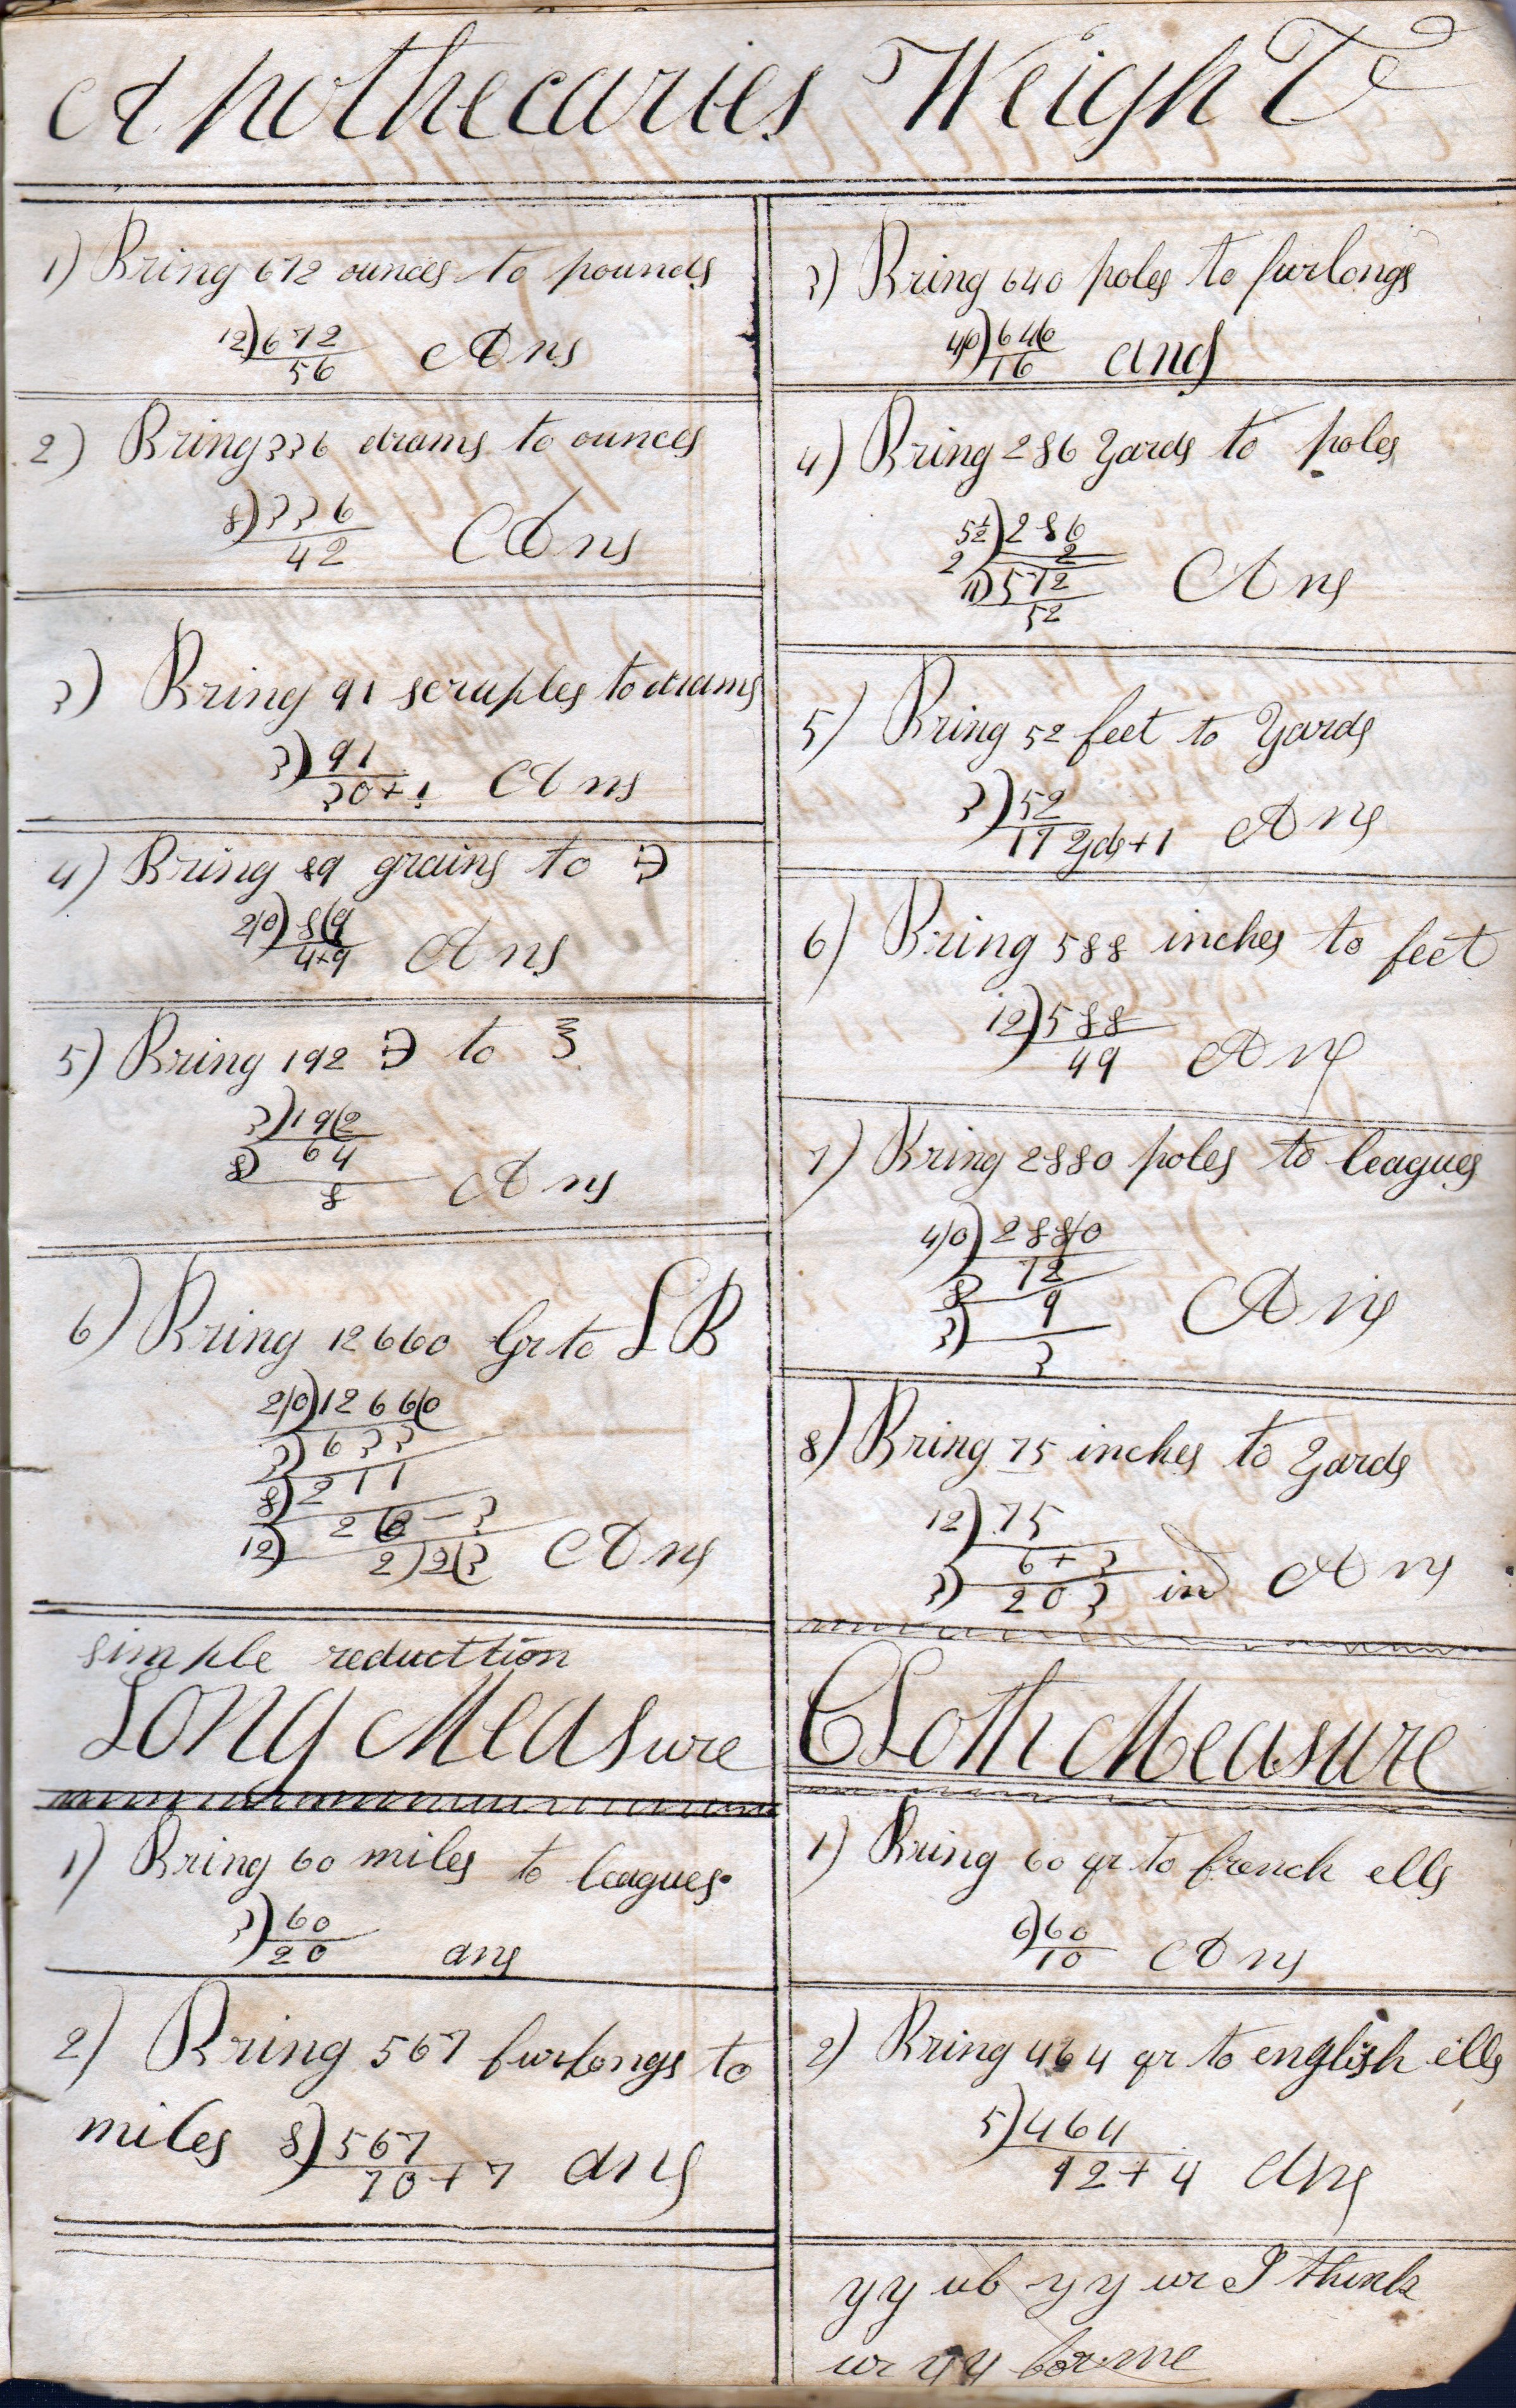 Apothecaries Weight
1) Bring 672 ounces to pounds
12)672
56 Ans
2) Bring 336 drams to ounces
8)336
42 Ans
3) Bring 91 scruples to drams
3)91
30+1 Ans
4) Bring 89 grains to ℈
2|0)8|9
4+9 Ans
5) Bring 192 ℈ to ℥
3)192
8) 64
8 Ans
6) Bring 12660 Gr to LB
2|0)1266|0
3)633
8)211
12) 26-3
2)2(3 Ans
simple reducttion
Long Measure
1) Bring 60 miles to leagues.
3)60
20 ans
2) Bring 567 furlongs to
miles 8)567
70+7 ans
3) Bring 640 poles to furlongs
4|0)64|0
16 ans
4) Bring 286 Yards to poles
5½)286
2 2
11)572
52 Ans
5) Bring 52 feet to Yards
3)52
17 Yds+1 Ans
6) Bring 588 inches to feet
12)588
49 Ans
7) Bring 2880 poles to leagues
4|0)288|0
8) 72
3) 9
3 Ans
8) Bring 75 inches to Yards
12)75
3) 6+3
2 0 3 in Ans
Cloth Measure
1) Bring 60 qr to french ells
6)60
10 Ans
2) Bring 464 qr to english ells
5)464
92+4 Ans
yy ub yy ur I think
ur yy for me